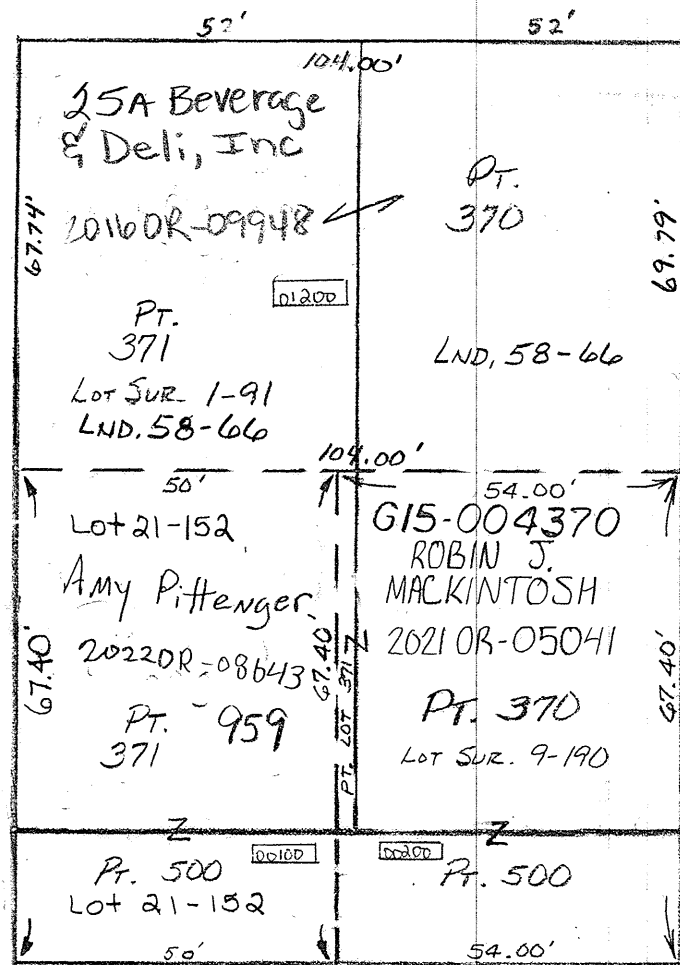 52'
52'
104.00'
25A Beverage
& Deli, Inc
2016OR-09948
67.74'
PT.
370
69.79'
01200
PT.
371
LOT SUR. 1-91
LND. 58-66
LND, 58-66
104.00'
50'
54.00'
Lot 21-152
Amy Pittenger
2022OR-08643
67.40'
67.40'
PT.
371
959
PT. LOT 371
Z
G15-004370
ROBIN J.
MACKINTOSH
2021 OR-05041
67.40'
PT. 370
LOT SUR. 9-190
Z
Z
00100
00200
PT. 500
Lot 21-152
PT. 500
50'
54.00'